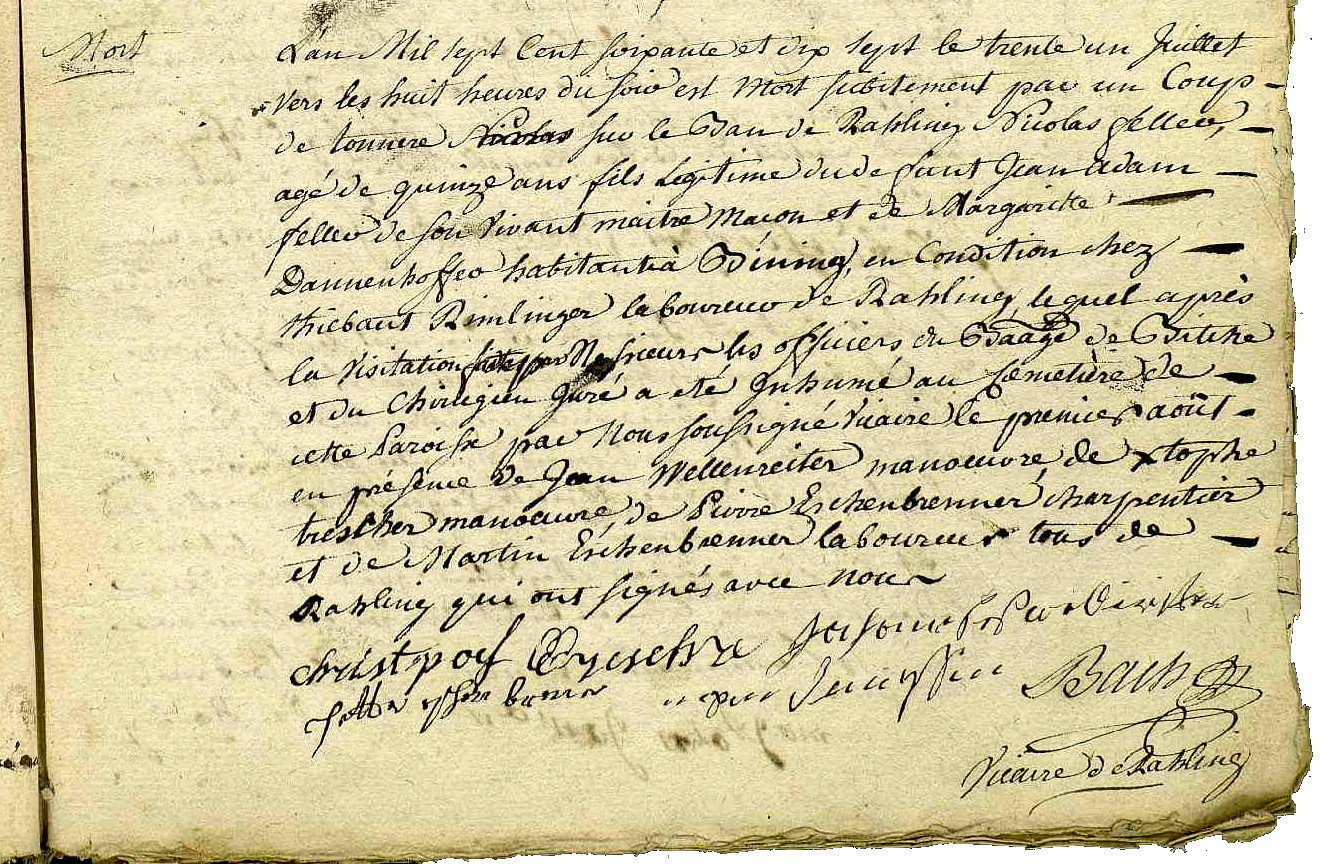 Mort
L'an Mil sept Cent soixante et dix sept le trente un Juillet
vers les huit heures du soir est mort subitement par un Coup
de tonnere Nicolas sur le Ban de Rahling Nicolas feller,
agé de quinze ans fils Legitime du defunt Jean adam
feller de son vivant maitre maçon et de Margueritte
Dannenhoffer habitant à Bining, en Condition chez
thiebaut Rimlinger laboureur de Rahling, lequel après
la visitation faite par Messieurs les officiers du Baage de Bitche
et du Chirurgien Juré a eté Inhumé au Cemetière de
cette Paroisse par Nous soussigné vicaire le premier août
en présence de Jean Wellenreiter manoeuvre, de xtophe
trescher manoeuvre, de Pierre Eschenbrenner charpentier
et de Martin Eschenbrenner laboureur tous de
Rahling qui ont signés avec nous
christpof
Bach
Vicaire de Rahling